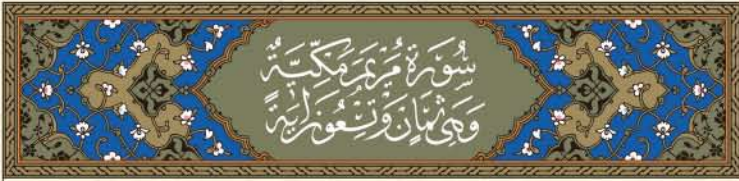 سُورَةُ مَرْيَمَ مَكِّيَّةٌ
وَهِيَ ثَمَانٌ وَتِسْعُونَ اٰيَةً